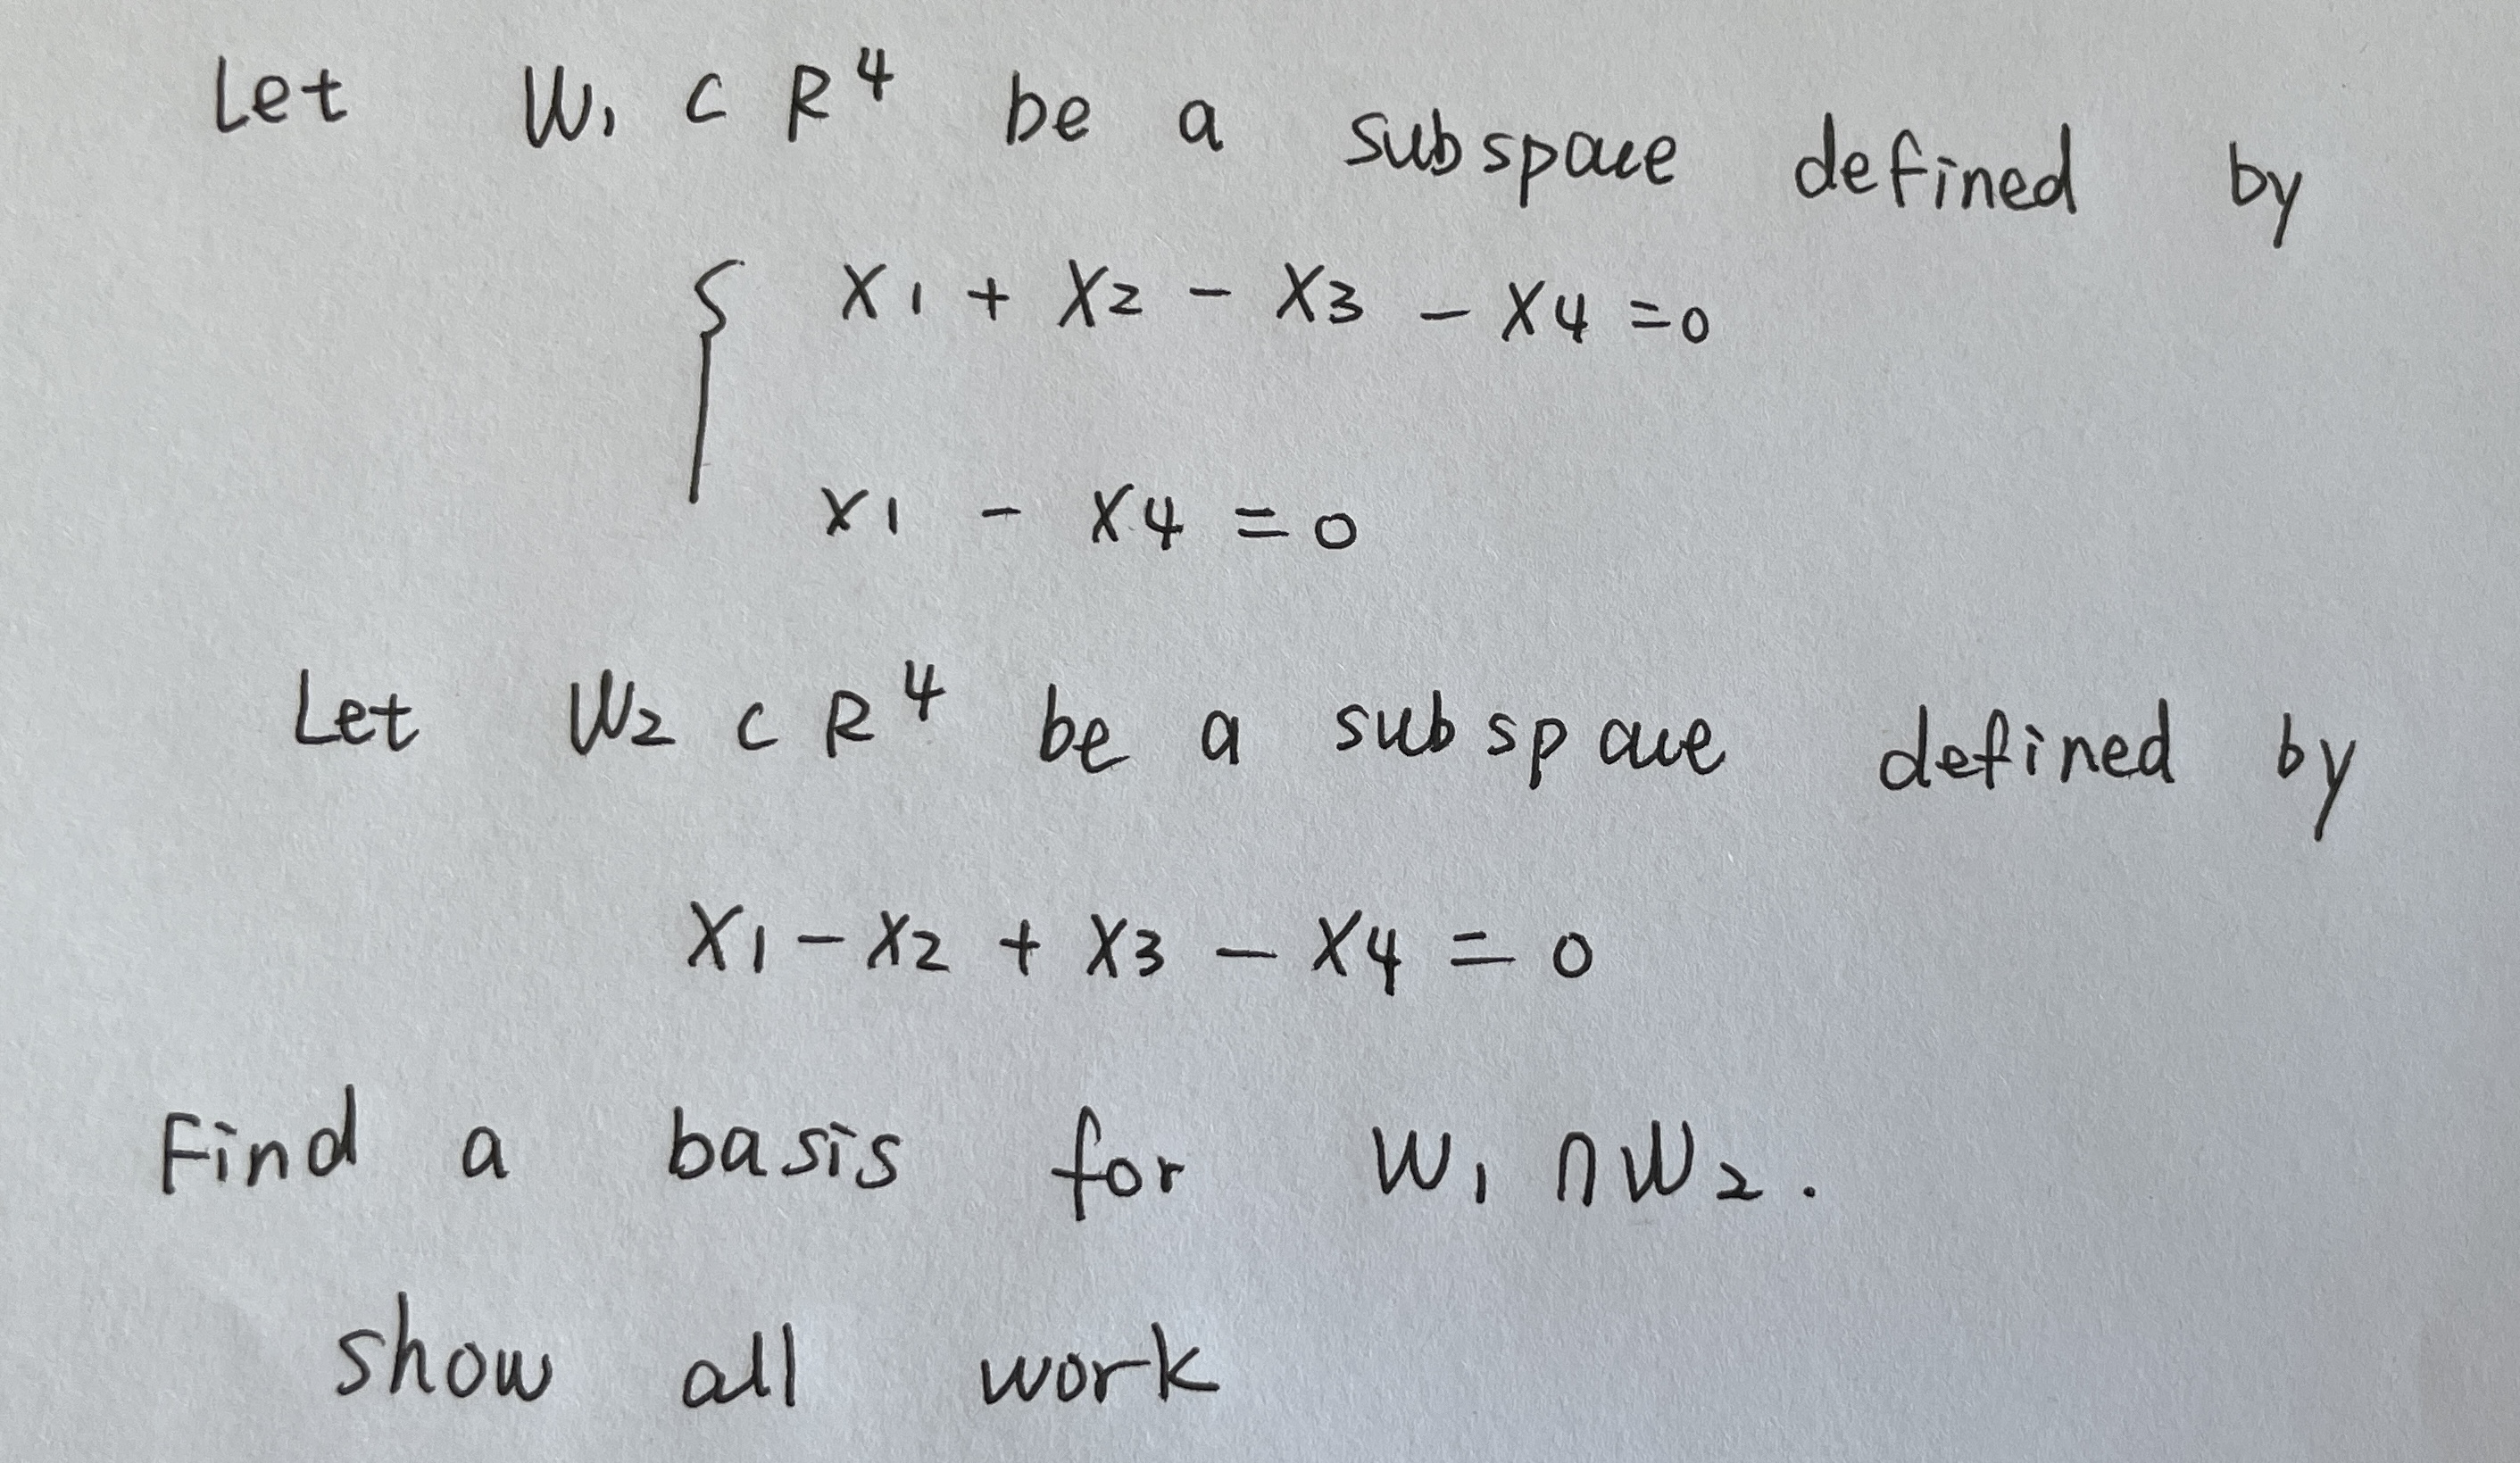 Let W₁ ⊂ R⁴ be a subspace defined by
{ x₁ + x₂ - x₃ - x₄ = 0
x₁ - x₄ = 0
Let W₂ ⊂ R⁴ be a subspace defined by
x₁ - x₂ + x₃ - x₄ = 0
Find a basis for W₁ ∩ W₂.
show all work